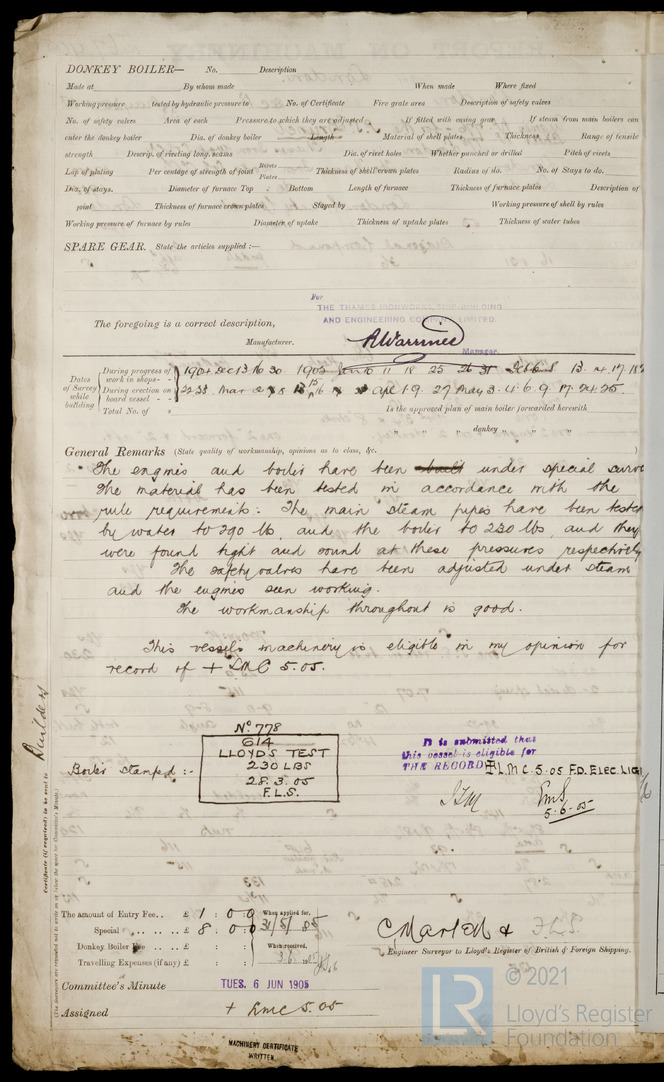 DONKEY BOILER— No. Description
Made at By whom made When made Where fixed
Working pressure tested by hydraulic pressure to No. of Certificate Fire grate area Description of safety valves
No. of safety valves Area of each Pressure to which they are adjusted If fitted with easing gear If steam from main boilers can
enter the donkey boiler Dia. of donkey boiler Length Material of shell plates Thickness Range of tensile
strength Descrip. of riveting long. seams Dia. of rivet holes Whether punched or drilled Pitch of rivets
Lap of plating Per centage of strength of joint Rivets Plates Thickness of shell crown plates Radius of do. No. of Stays to do.
Dia. of stays. Diameter of furnace Top : Bottom Length of furnace Thickness of furnace plates Description of
joint Thickness of furnace crown plates Stayed by Working pressure of shell by rules
Working pressure of furnace by rules Diameter of uptake Thickness of uptake plates Thickness of water tubes
SPARE GEAR. State the articles supplied :—
For
THE THAMES IRONWORKS, SHIP BUILDING
AND ENGINEERING COMPANY LIMITED.
The foregoing is a correct description,
Manufacturer.
Manager.
Dates of Survey while building
During progress of work in shops- - 1904 Dec 13 16 30 1905 Jan 10 11 18 25 26 31 Feb 6 8 13
During erection on board vessel - - Mar 8 Apl 19 27 May 3. 4. 6. 9. 17. 24. 25.
Total No. of
Is the approved plan of main boiler forwarded herewith
" " donkey " " "
General Remarks (State quality of workmanship, opinions as to class, &c. )
The engines and boiler have been built under special
The material has been tested in accordance with the
rule requirements. The main steam pipes have been
by water to 390 lb, and the boiler to 230 lbs, and they
were found tight and sound at these pressures respectively
The safety valves have been adjusted under steam
and the engines seen working.
The workmanship throughout is good.
This vessel's machinery is eligible in my opinion for
record of + LMC 5.05.
No 778
614
LLOYD'S TEST
230 LBS
28.3.05
F.L.S.
Boiler stamped :-
It is submitted that
this vessel is eligible for
THE RECORD + L M C. 5. 05 F.D. ELEC. LIG
5.6.05
Certificate (if required) to be sent to Builders
The amount of Entry Fee.. £ 1 : 0 : 0 When applied for,
Special .. .. .. £ 8 : 0 : 0 31/5/05
Donkey Boiler Fee .. .. £ : : When received,
Travelling Expenses (if any) £ : :
F.L.S.
Engineer Surveyor to Lloyd's Register of British & Foreign Shipping.
Committee's Minute TUES. 6 JUN 1905
Assigned + LMC 5.05
MACHINERY CERTIFICATE
WRITTEN
© 2021
LR
Lloyd's Register
Foundation